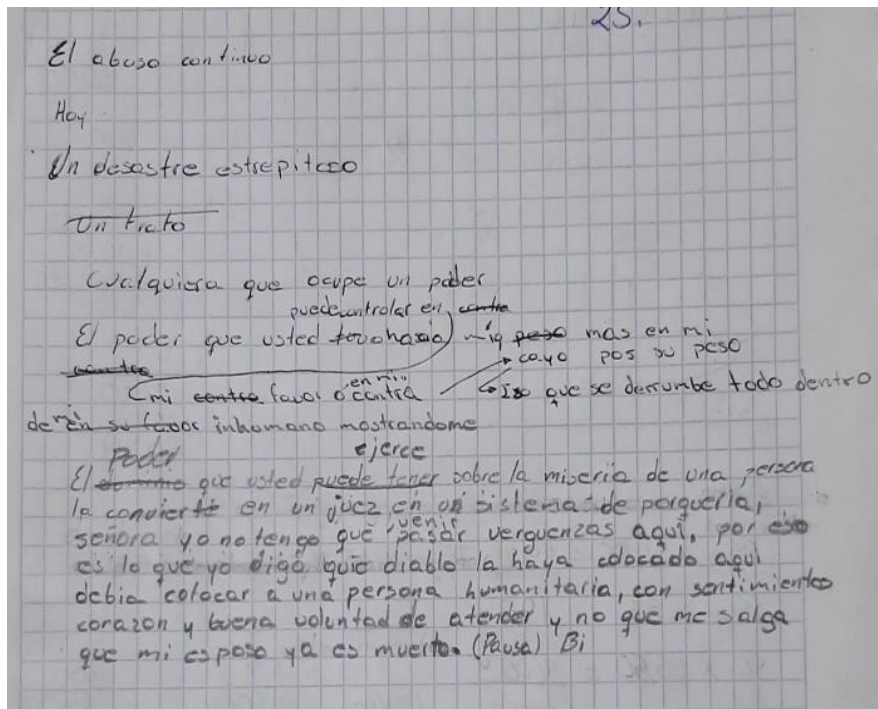 25.
El abuso continuo
Hoy
Un desastre estrepitoso
Un trato
Cualquiera que ocupe un poder
puede controlar en contra
El poder que usted peso mas en mi
contra
cayo por su peso
mi contra favor o en mi contra
Iso que se derrumbe todo dentro
de mi En su favor inhumano mostrandome
Poder ejerce
El que usted puede tener sobre la miseria de una persona
la convierte en un juez en un sistema de porqueria,
señora yo no tengo que venir pasar verguenzas aqui, por eso
es lo que yo digo quie diablo la haya colocado aqui
debia colocar a una persona humanitaria, con sentimientos
corazon y buena voluntad de atender y no que me salga
que mi esposo ya es muerto. (Pausa) Bi